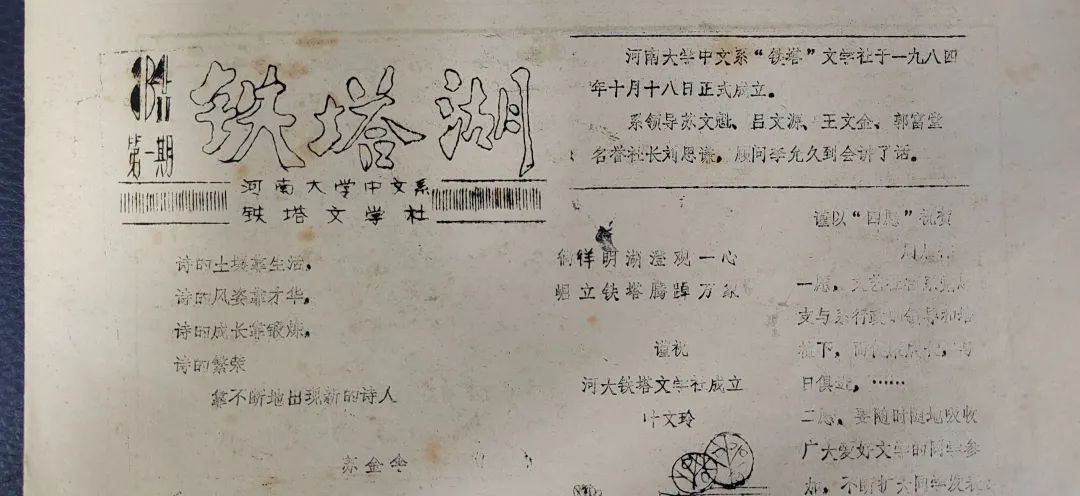 铁塔湖
第一期
河南大学中文系
铁塔文学社
河南大学中文系“铁塔”文学社于一九八四
年十月十八日正式成立。
系领导苏文魁、吕文源、王文金、郭富堂
名誉社长刘思谦，顾问李允久到会讲了话。
诗的土壤靠生活，
诗的风姿靠才华，
诗的成长靠锻炼，
诗的繁荣
靠不断地出现新的诗人
苏金伞
徜徉明湖澄观一心
崛立铁塔腾踔万象
谨祝
河大铁塔文学社成立
叶文玲
谨以“四愿”祝贺
一愿，文艺社在系党总
支与系行政的领导和培
植下，
日俱进，……
二愿，要随时随地吸收
广大爱好文学的同学参
加，不断扩大同学发表